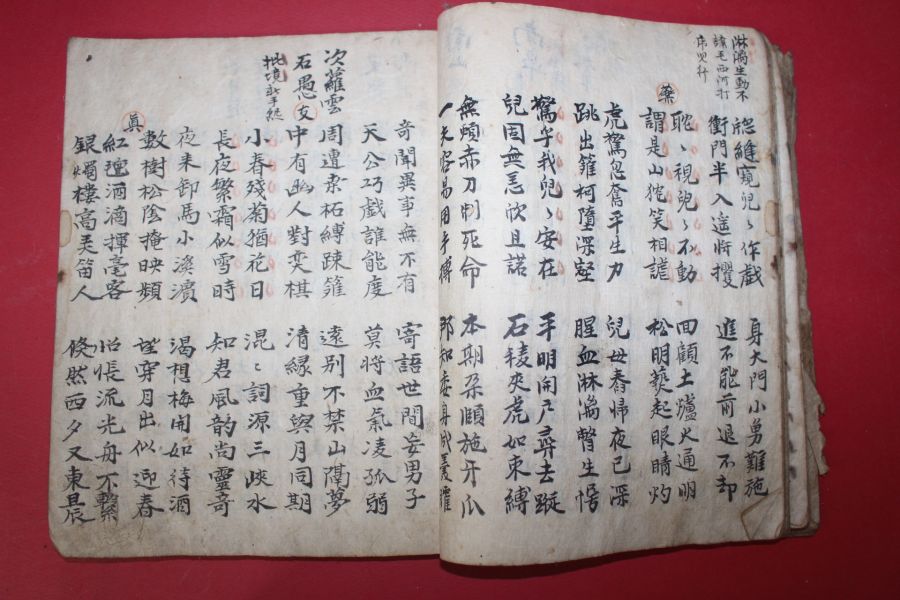 淋漓生動不
讓毛西河打
虎兒行
窓縫窺兒〻作戲 身大門小勇難施
衝門半入遙將攫 進不能前退不却
藥
眈〻視兒〻不動 回顧土爐火通明
謂是山㹨笑相謔 松明爇起眼睛灼
虎驚忽奮平生力 兒母舂歸夜已深
跳出籬柯墮深壑 腥血淋漓瞥生愕
驚乎我兒〻安在 平明開戶尋去蹤
兒固無恙欣且諾 石稜夾虎如束縛
無煩赤刀制死命 本期朶頤施牙爪
一夫容易用手搏 那知委身成羹臛
奇聞異事無不有 寄語世間妄男子
天公巧戲誰能度 莫將血氣凌孤弱
次蘿雲
石愚 支
周遭 柘縛疎籬 遠別不禁山隔夢
中有幽人對奕棋 清緣重與月同期
小春殘菊猶花日 混〻詞源三峽水
長夜繁霜似雪時 知君風韵尚靈奇
夜來卸馬小溪濱 渴想梅開如待酒
眞
數樹松陰掩映頻 望穿月出似迎春
紅 酒滴揮毫客 怊悵流光舟不繫
銀燭樓高弄笛人 倏然西夕又東晨